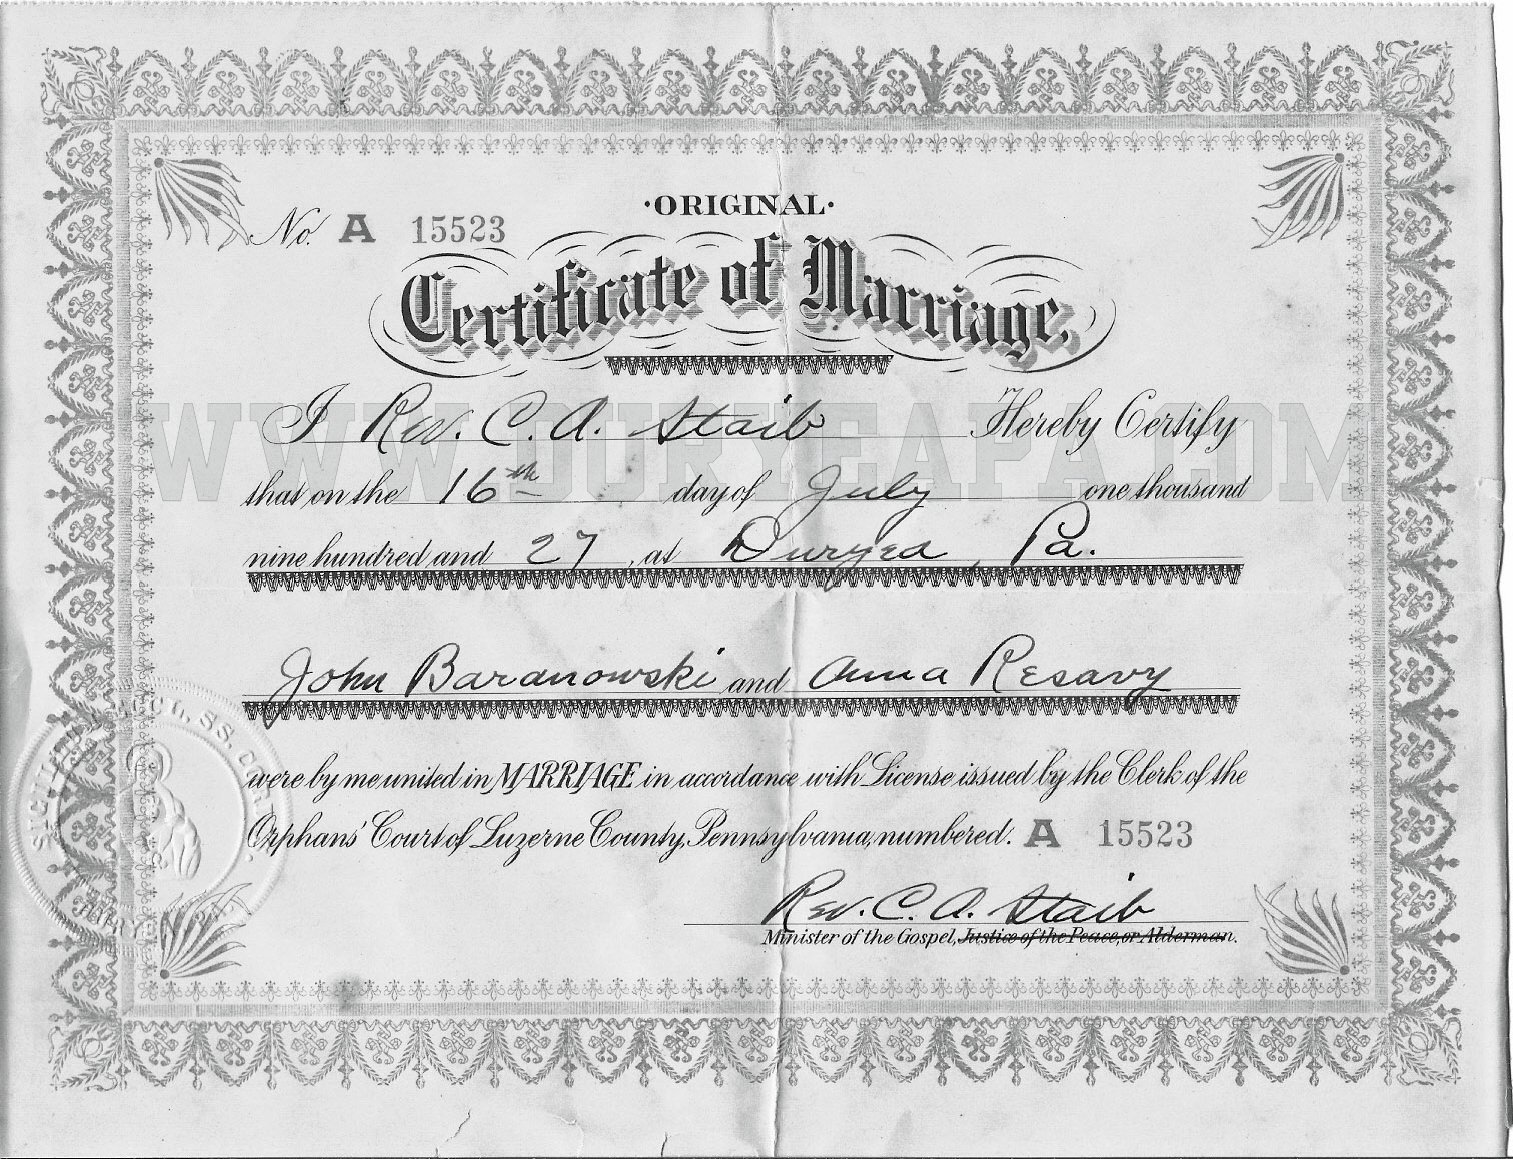 ·ORIGINAL·
No. A 15523
Certificate of Marriage,
WWW.DURYEAPA.COM
I Rev. C. A. Staib Hereby Certify
that on the 16th day of July one thousand
nine hundred and 27, at Duryea, Pa.
John Baranowski and Anna Resavy
were by me united in MARRIAGE in accordance with License issued by the Clerk of the
Orphans' Court of Luzerne County, Pennsylvania, numbered. A 15523
Rev. C. A. Staib
Minister of the Gospel, Justice of the Peace, or Alderman.